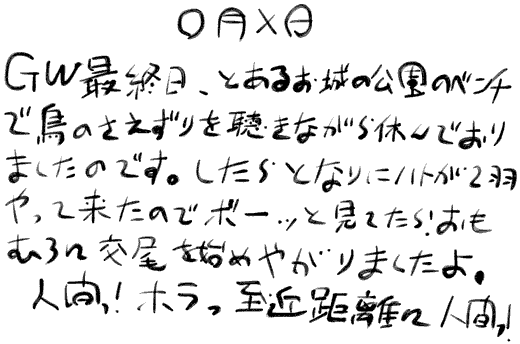 〇月×日
GW最終日、とあるお城の公園のベンチ
で鳥のさえずりを聴きながら休んでおり
ましたのです。したらとなりにハトが2羽
やって来たのでボーッと見てたら!おも
むろに交尾を始めやがりましたよ。
人間っ!ホラっ至近距離に人間っ!